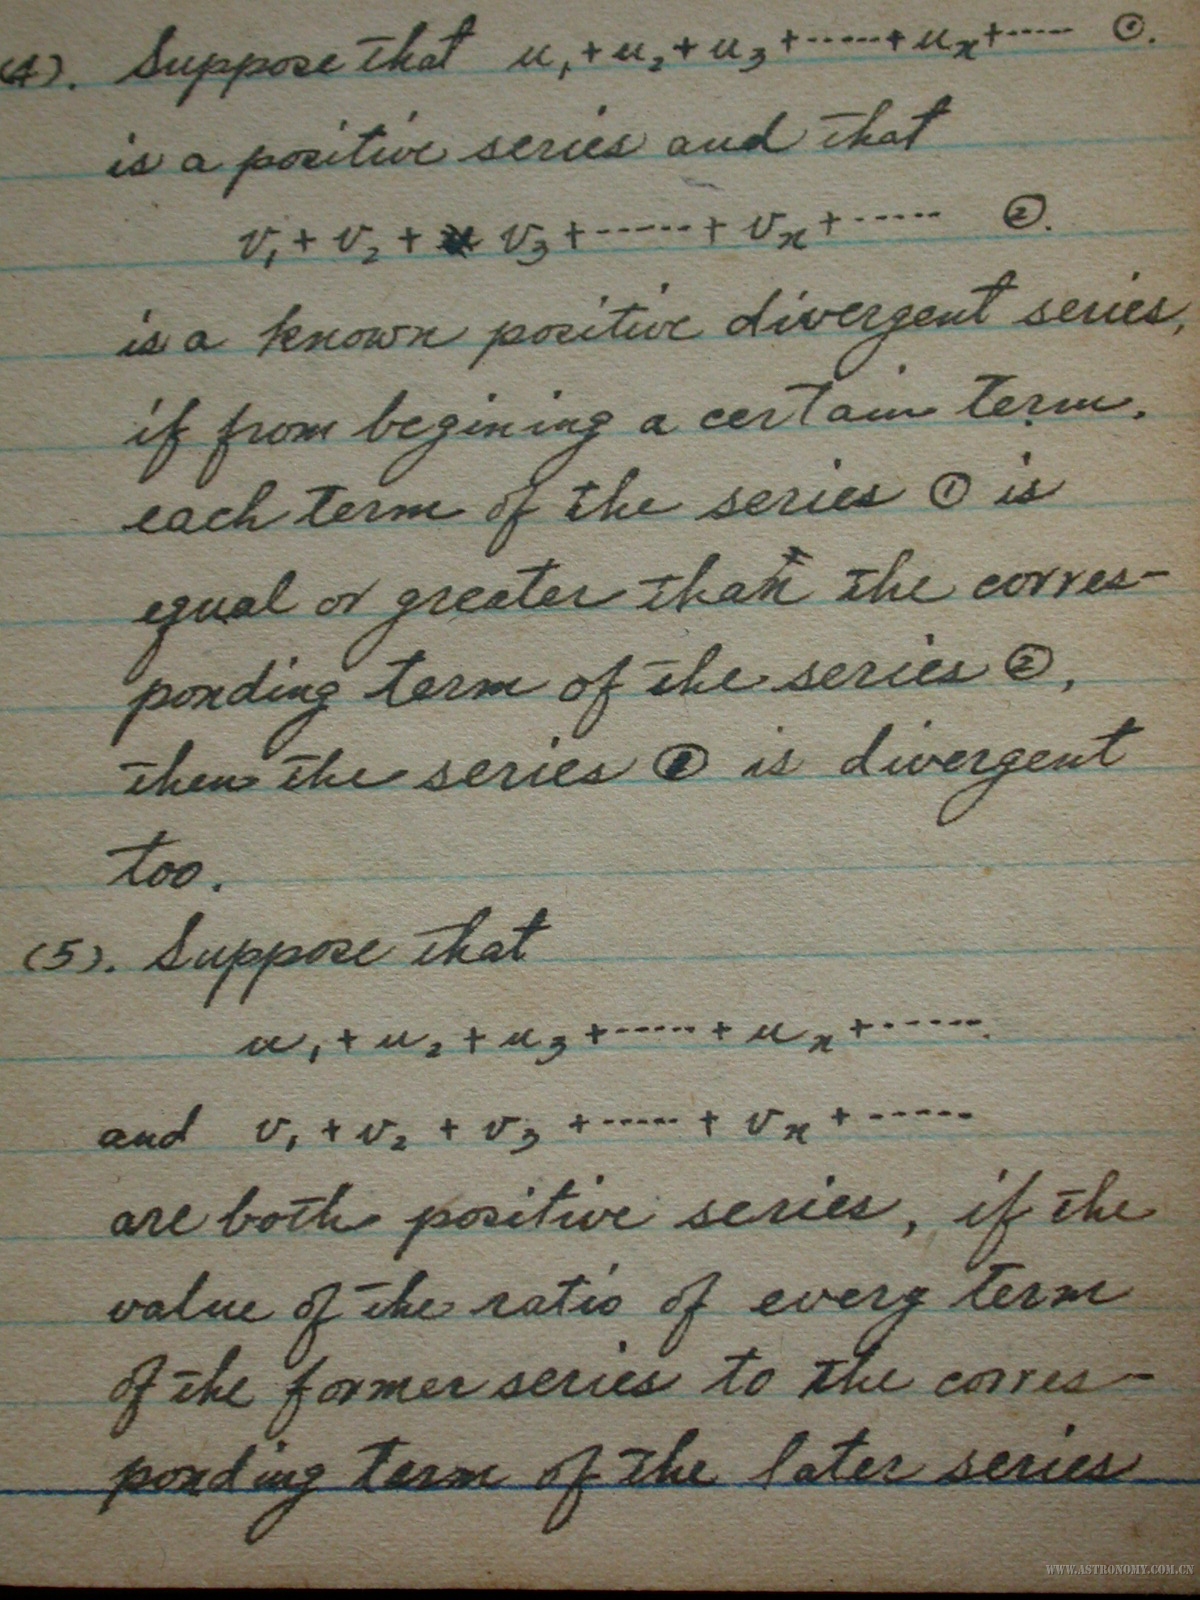 (4). Suppose that u₁+u₂+u₃+-----+uₙ+----- ①.
is a positive series and that
v₁+v₂+ v₃+------+vₙ+------ ②.
is a known positive divergent series,
if from begining a certain term.
each term of the series ① is
equal or greater than the corres-
ponding term of the series ②,
then the series ① is divergent
too.
(5). Suppose that
u₁+u₂+u₃+-----+uₙ+------.
and v₁+v₂+v₃+-----+vₙ+-----
are both positive series, if the
value of the ratio of every term
of the former series to the corres-
ponding term of the later series
WWW.ASTRONOMY.COM.CN